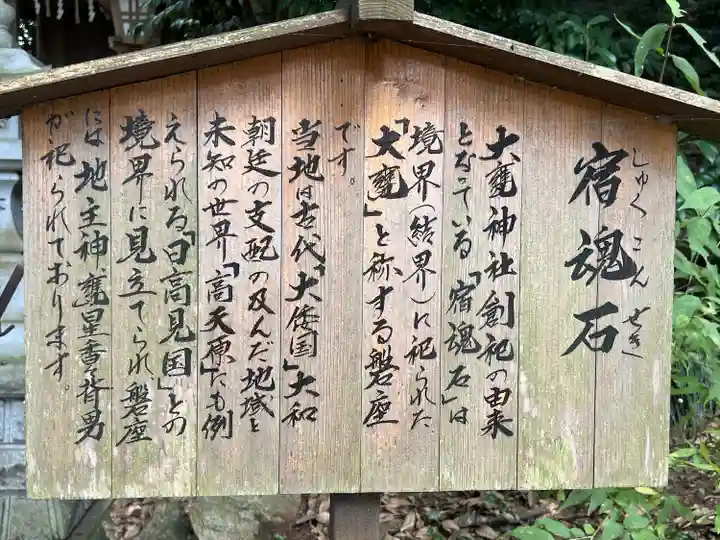 宿魂石
しゅくこんせき
大甕神社創祀の由来
となっている「宿魂石」は
境界(結界)に祀られた
「大甕」と称する磐座
です。
当地は古代「大倭国」大和
朝廷の支配の及んだ地域と
未知の世界「高天原」にも例
えられる「日高見国」との
境界に見立てられ磐座
には地主神、甕星香々背男
が祀られております。